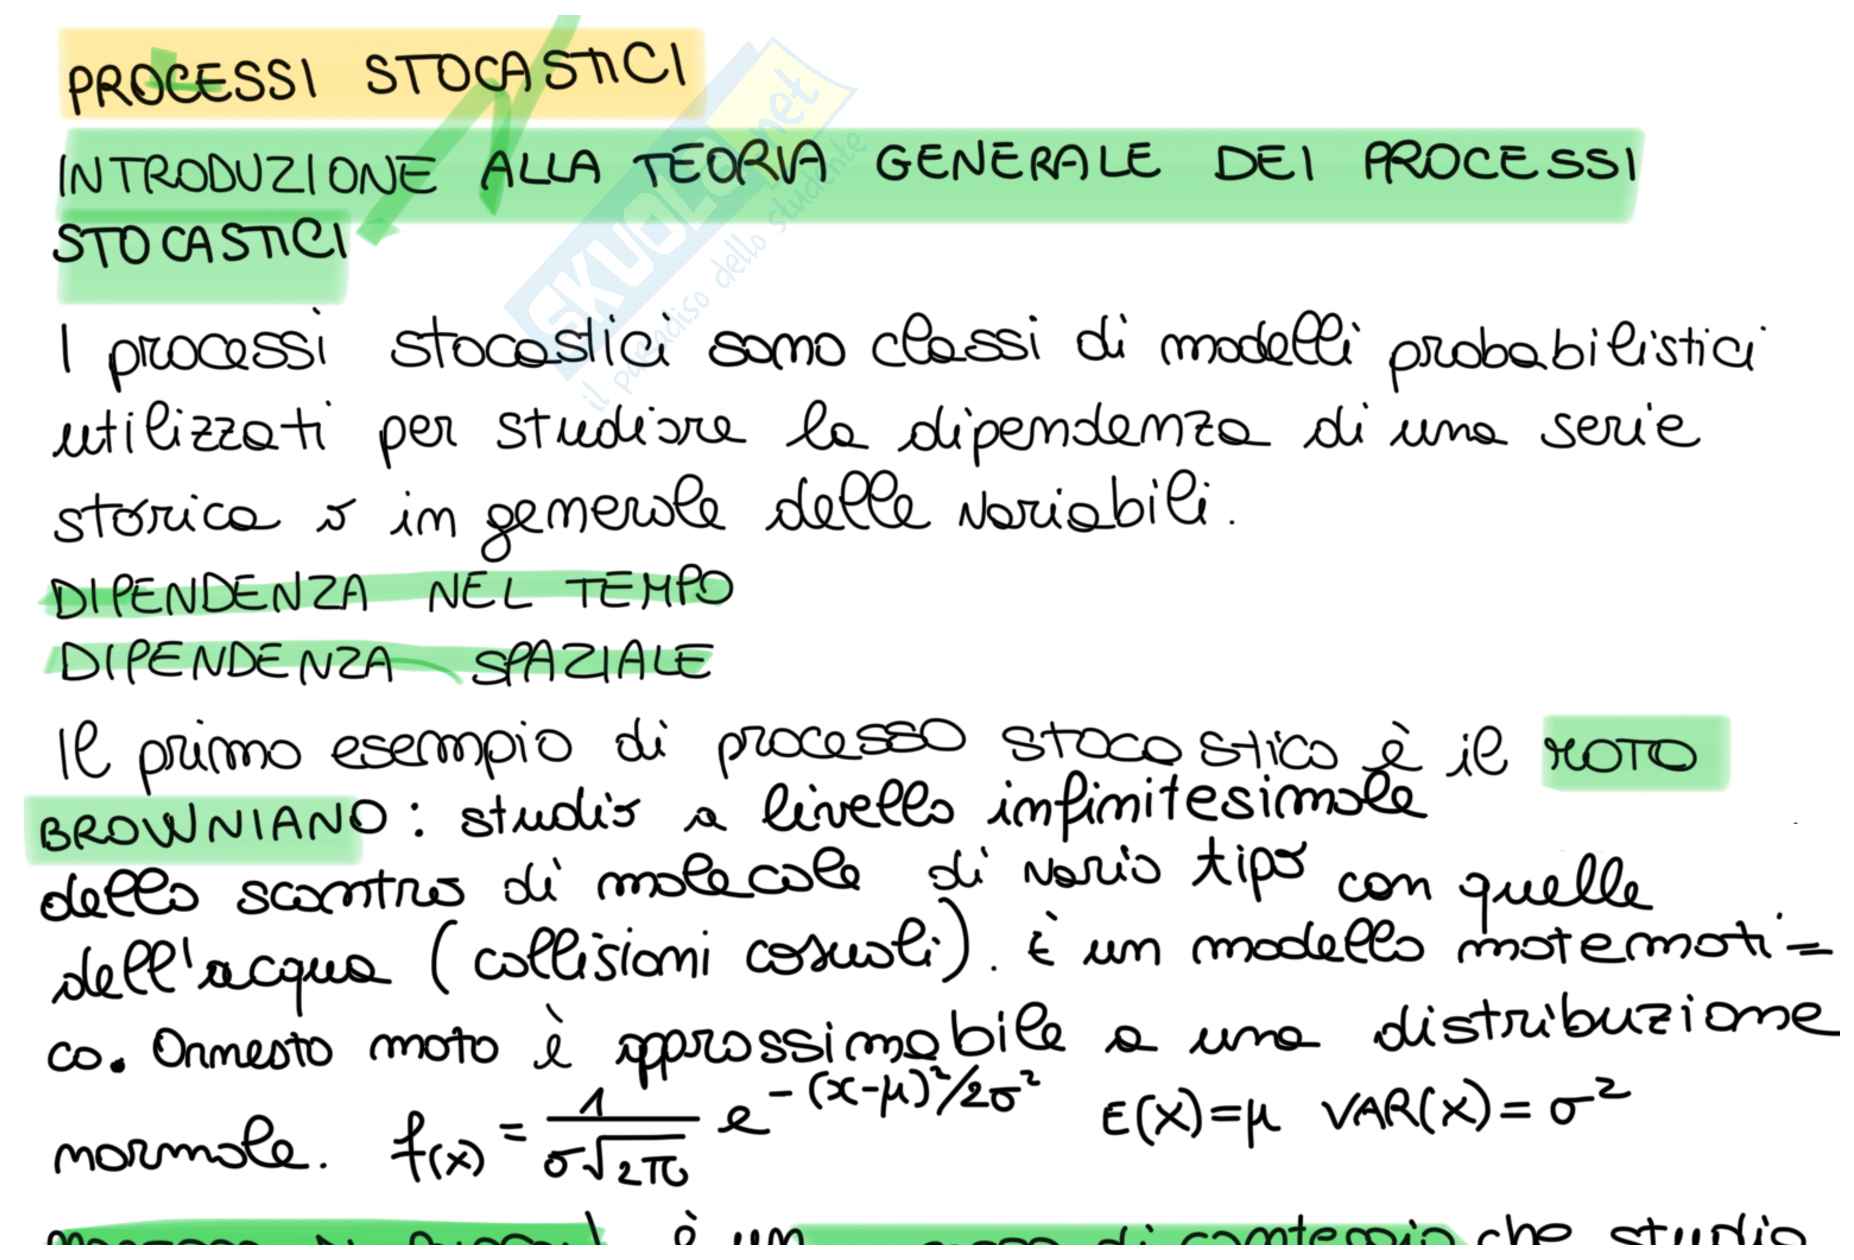 PROCESSI STOCASTICI
INTRODUZIONE ALLA TEORIA GENERALE DEI PROCESSI
STOCASTICI
SKUOLA.net
il paradiso dello studente
I processi stocastici sono classi di modelli probabilistici
utilizzati per studiare la dipendenza di una serie
storica o in generale delle variabili.
DIPENDENZA NEL TEMPO
DIPENDENZA SPAZIALE
Il primo esempio di processo stocastico è il MOTO
BROWNIANO: studio a livello infinitesimale
dello scontro di molecole di vario tipo con quelle
dell'acqua (collisioni casuali). È un modello matemati=
co. Onnesto moto è approssimabile a una distribuzione
normale. f(x) = 1/σ√2π e^-(x-μ)²/2σ² E(X)=μ VAR(X)=σ²
PROCESSO DI è un di conteggio che studia